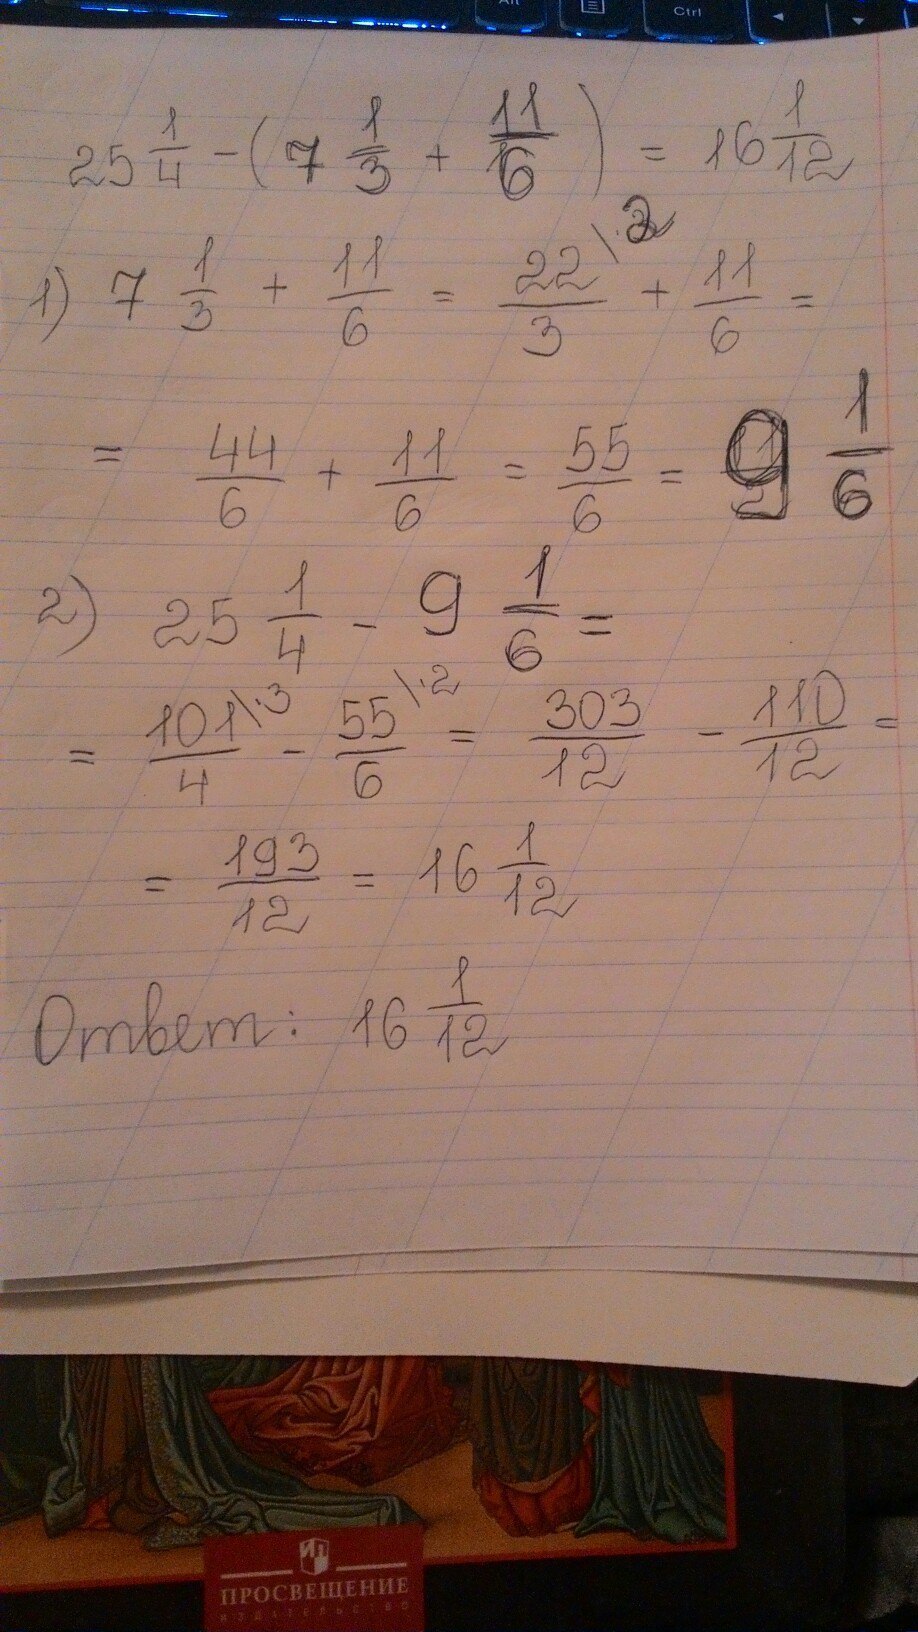 Alt
Ctrl
25 1/4 - (7 1/3 + 11/6) = 16 1/12
1) 7 1/3 + 11/6 = 22\·2/3 + 11/6 =
= 44/6 + 11/6 = 55/6 = 9 1/6
2) 25 1/4 - 9 1/6 =
= 101\·3/4 - 55\·2/6 = 303/12 - 110/12 =
= 193/12 = 16 1/12
Ответ: 16 1/12
ПРОСВЕЩЕНИЕ
ИЗДАТЕЛЬСТВО